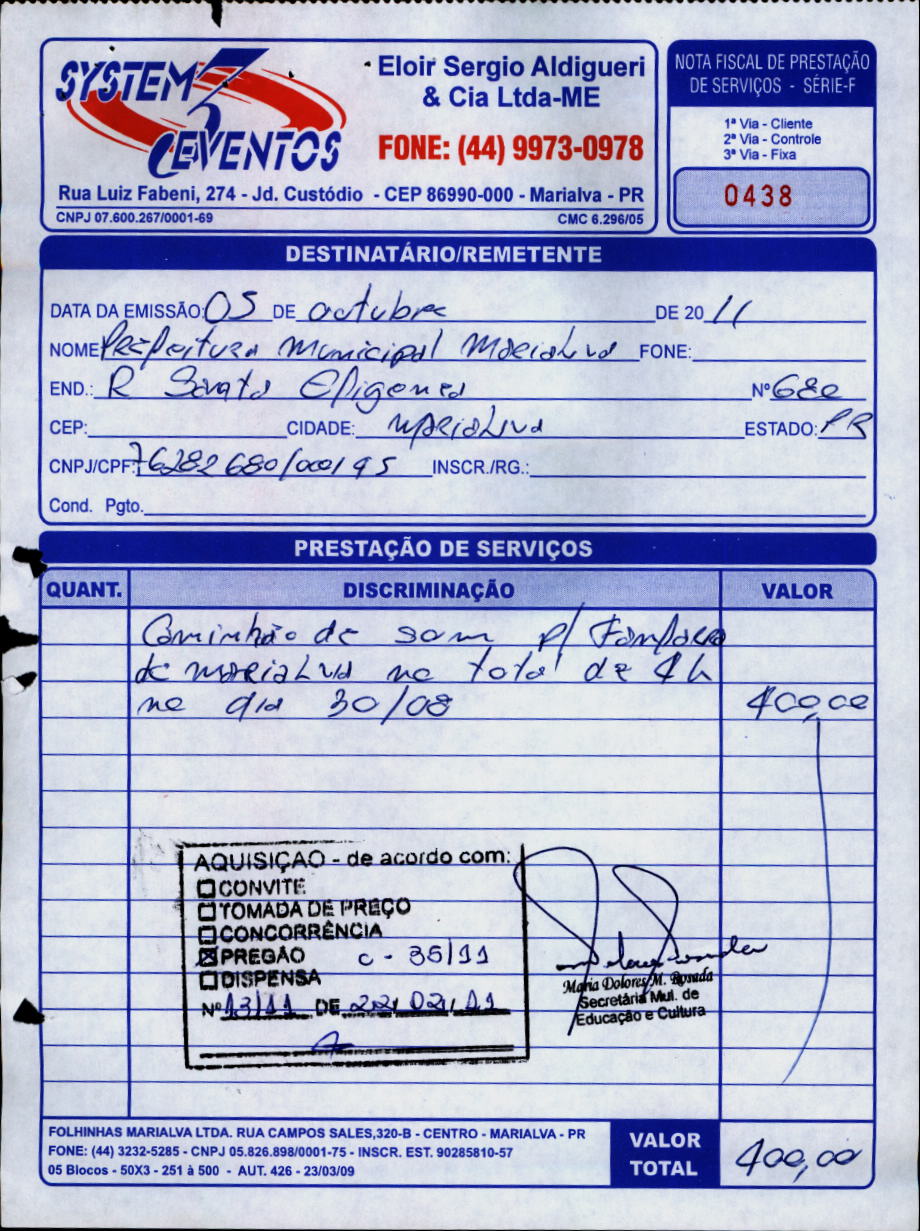 SYSTEM 3 EVENTOS
Eloir Sergio Aldigueri
& Cia Ltda-ME
FONE: (44) 9973-0978
Rua Luiz Fabeni, 274 - Jd. Custódio - CEP 86990-000 - Marialva - PR
CNPJ 07.600.267/0001-69 CMC 6.296/05
NOTA FISCAL DE PRESTAÇÃO
DE SERVIÇOS - SÉRIE-F
1ª Via - Cliente
2ª Via - Controle
3ª Via - Fixa
0438
DESTINATÁRIO/REMETENTE
DATA DA EMISSÃO: 05 DE outubro DE 20 11
NOME Prefeitura Municipal Marialva FONE:
END.: R Santa Efigenia Nº 680
CEP: CIDADE: Marialva ESTADO: PR
CNPJ/CPF: 76282680/001 95 INSCR./RG.:
Cond. Pgto.
PRESTAÇÃO DE SERVIÇOS
QUANT. DISCRIMINAÇÃO VALOR
Caminhão de som p/ Fanfarra
de Marialva no total de 4h
no dia 30/08 400,00
AQUISIÇÃO - de acordo com:
CONVITE
TOMADA DE PREÇO
CONCORRÊNCIA
PREGÃO C - 35/11
DISPENSA
Nº 13/11 DE 22/02/11
Maria Dolores M. Bosada
Secretária Mul. de
Educação e Cultura
FOLHINHAS MARIALVA LTDA. RUA CAMPOS SALES,320-B - CENTRO - MARIALVA - PR
FONE: (44) 3232-5285 - CNPJ 05.826.898/0001-75 - INSCR. EST. 90285810-57
05 Blocos - 50X3 - 251 à 500 - AUT. 426 - 23/03/09
VALOR
TOTAL 400,00